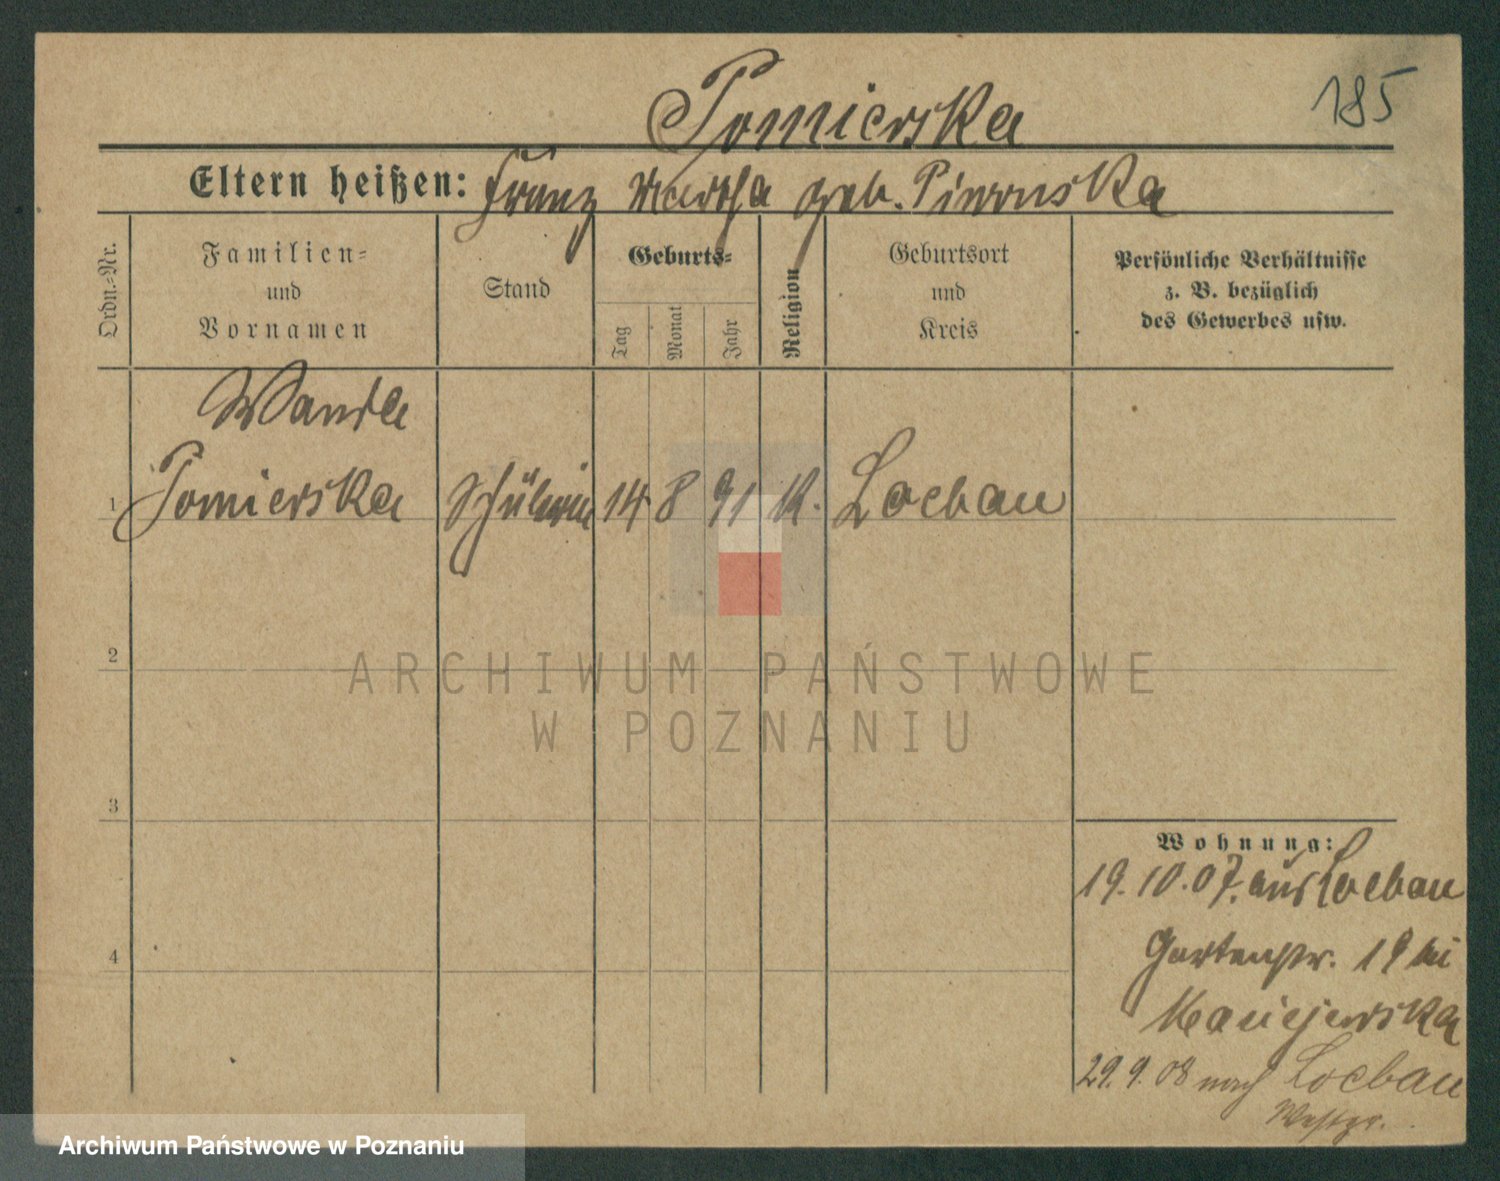 185
Pomierska
Eltern heißen: Franz Martha geb.
Ordn.-Nr.
Familien-
und
Vornamen
Stand
Geburts-
Tag
Monat
Jahr
Religion
Geburtsort
und
Kreis
Persönliche Verhältnisse
z. B. bezüglich
des Gewerbes usw.
Wanda
1 Pomierska Schülerin 14 8 91 K. Loebau
2
3
4
Wohnung:
19.10.07. aus Loebau
Gartenstr. 19 bei
29.9.08 nach Loebau
Westpr.
ARCHIWUM PAŃSTWOWE
W POZNANIU
Archiwum Państwowe w Poznaniu